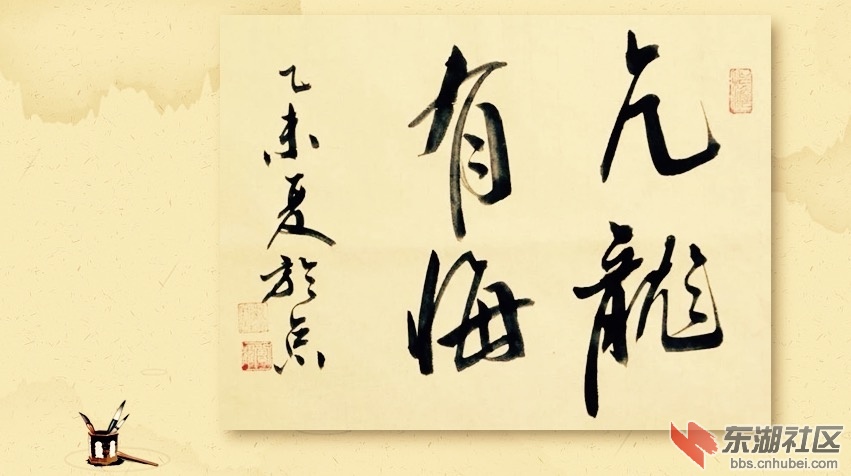 亢龍
有悔
乙未夏於京
东湖社区
bbs.cnhubei.com